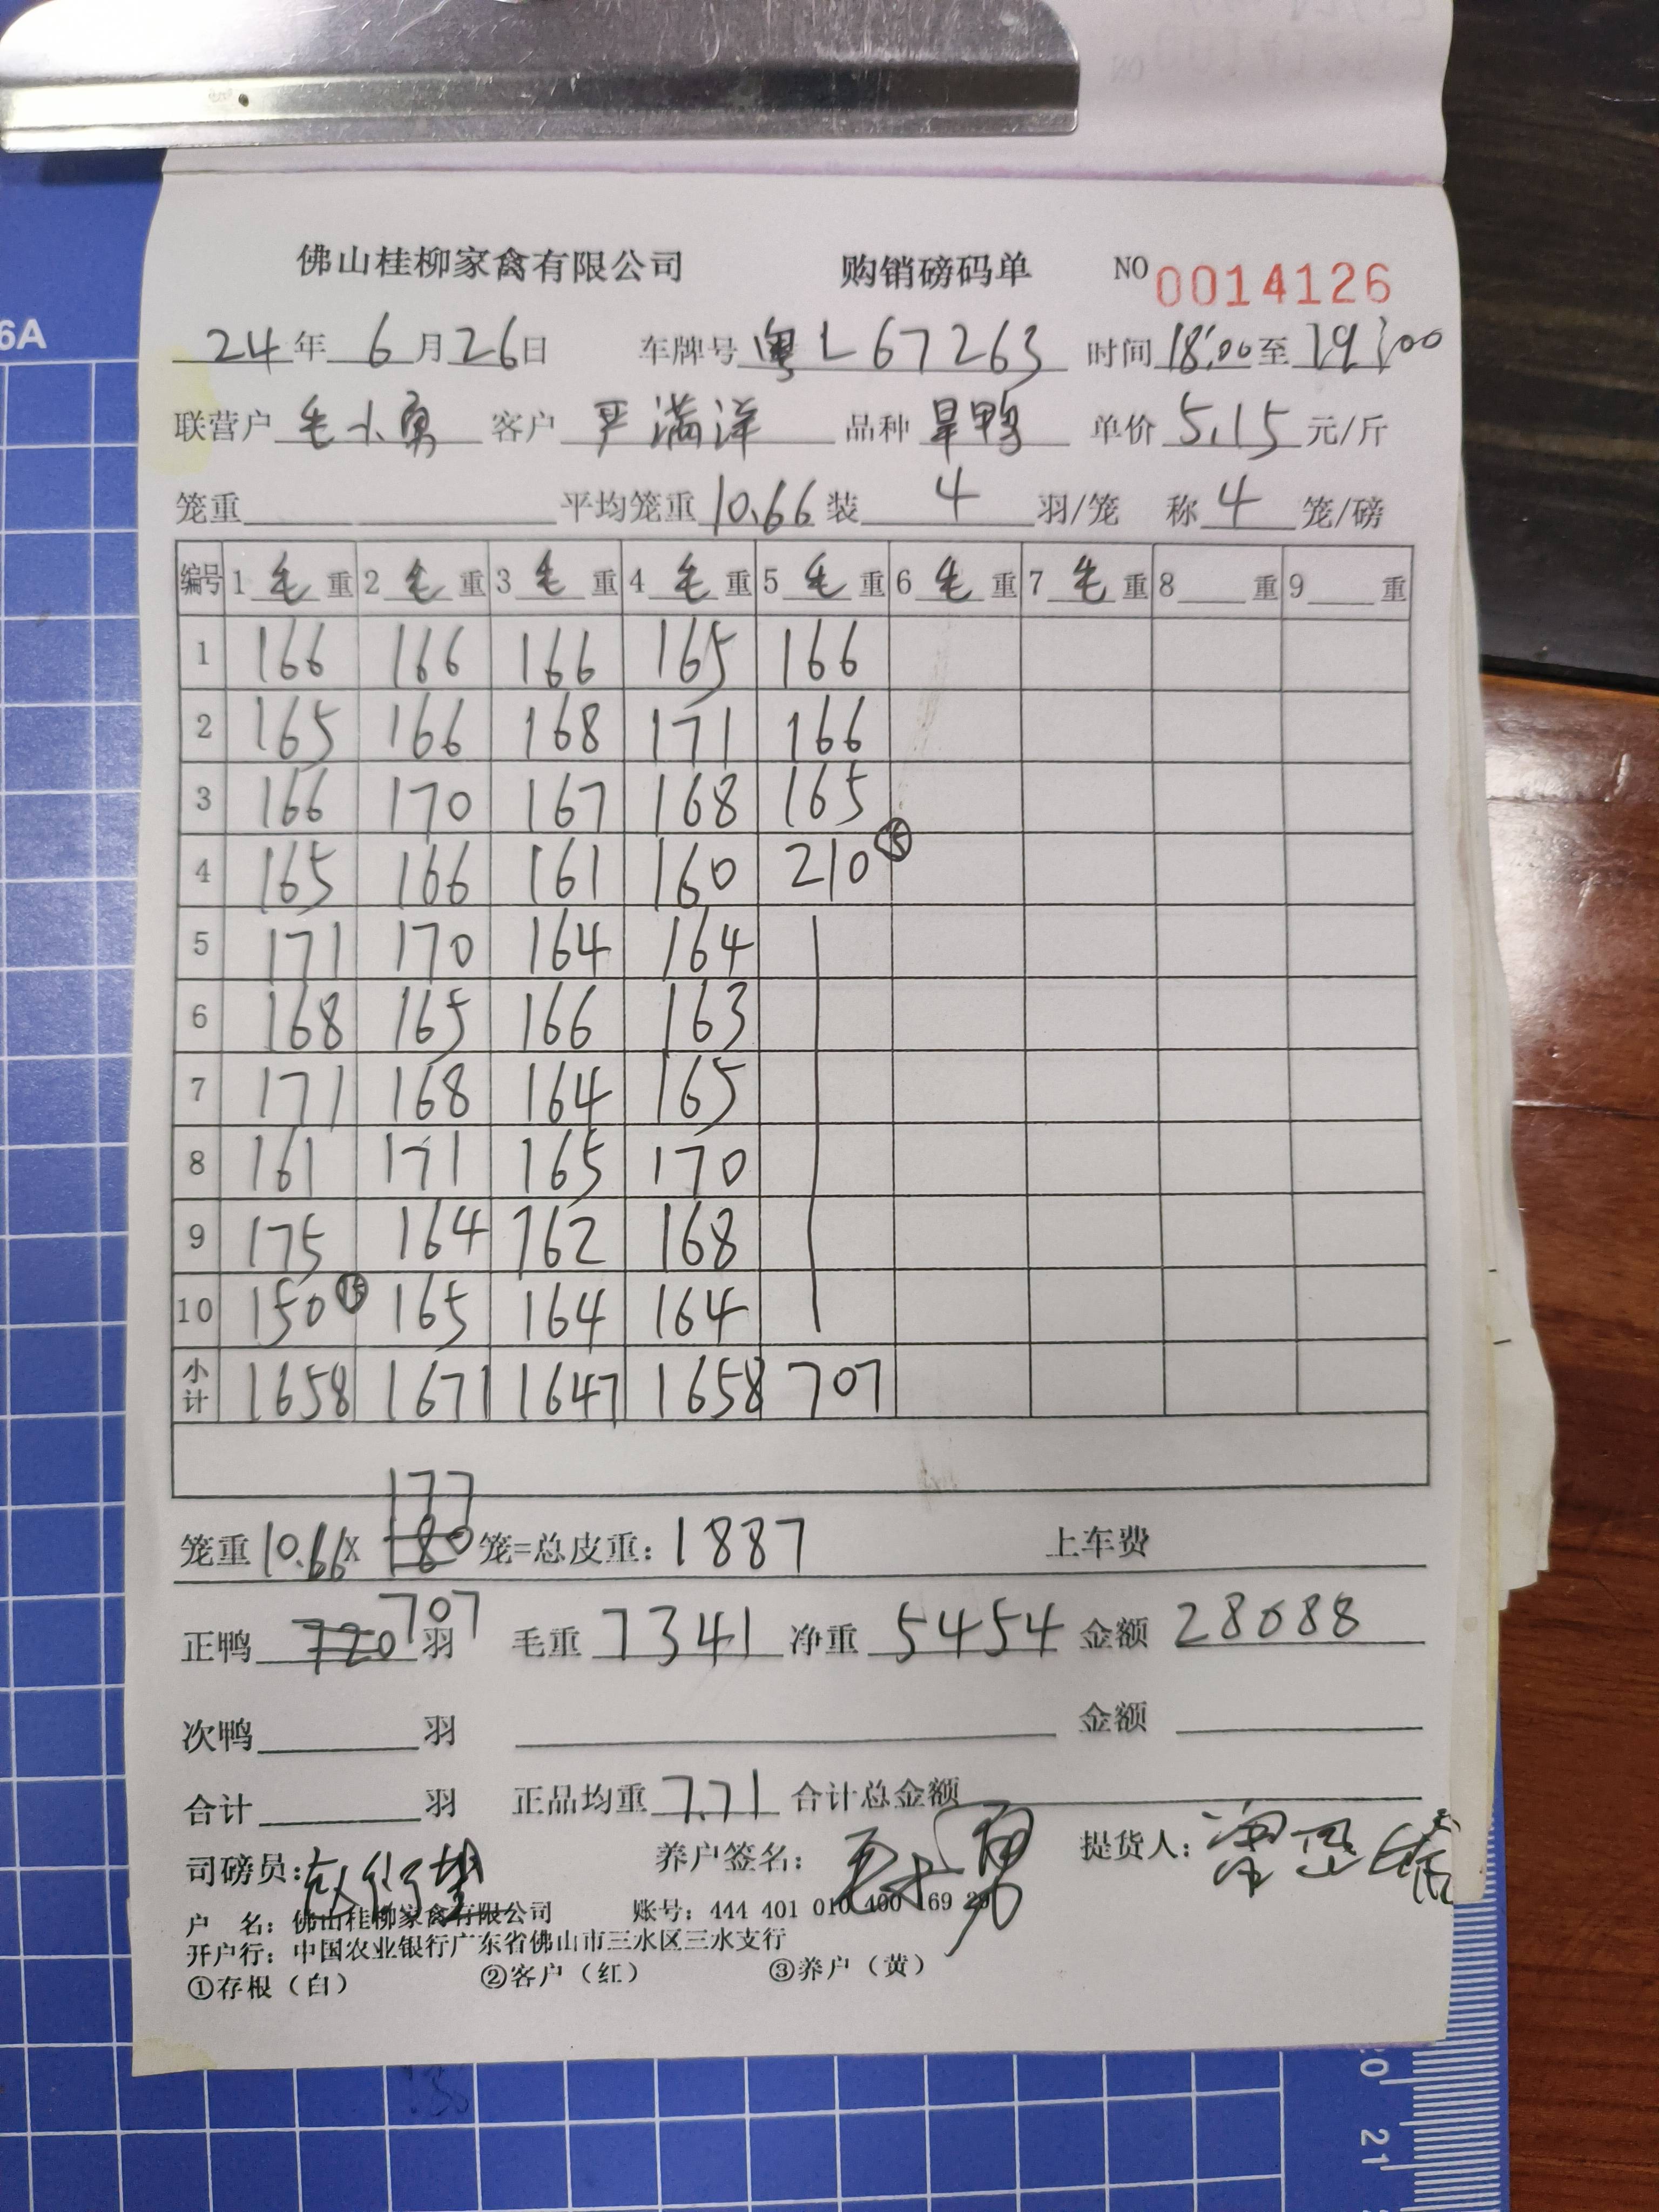 6A
佛山桂柳家禽有限公司 购销磅码单 NO 0014126
24年6月26日 车牌号 粤L67263 时间 18:00至19:00
联营户 毛小勇 客户 严满洋 品种 旱鸭 单价 5.15 元/斤
笼重 平均笼重 10.66 装 4 羽/笼 称 4 笼/磅
编号 1 毛 重 2 毛 重 3 毛 重 4 毛 重 5 毛 重 6 毛 重 7 毛 重 8 重 9 重
1 166 166 166 165 166
2 165 166 168 171 166
3 166 170 167 168 165
4 165 166 161 160 210 ⑤
5 171 170 164 164
6 168 165 166 163
7 171 168 164 165
8 161 171 165 170
9 175 164 162 168
10 150 ⑮ 165 164 164
小计 1658 1671 1647 1658 707
177
笼重 10.66 X 180 笼=总皮重: 1887 上车费
707
正鸭 720 羽 毛重 7341 净重 5454 金额 28088
次鸭 羽 金额
合计 羽 正品均重 7.71 合计总金额
司磅员: 养户签名: 毛小勇 提货人:
户 名: 佛山桂柳家禽有限公司 账号: 444 401 010 400 169 29
开户行: 中国农业银行广东省佛山市三水区三水支行
①存根（白） ②客户（红） ③养户（黄）
20
21